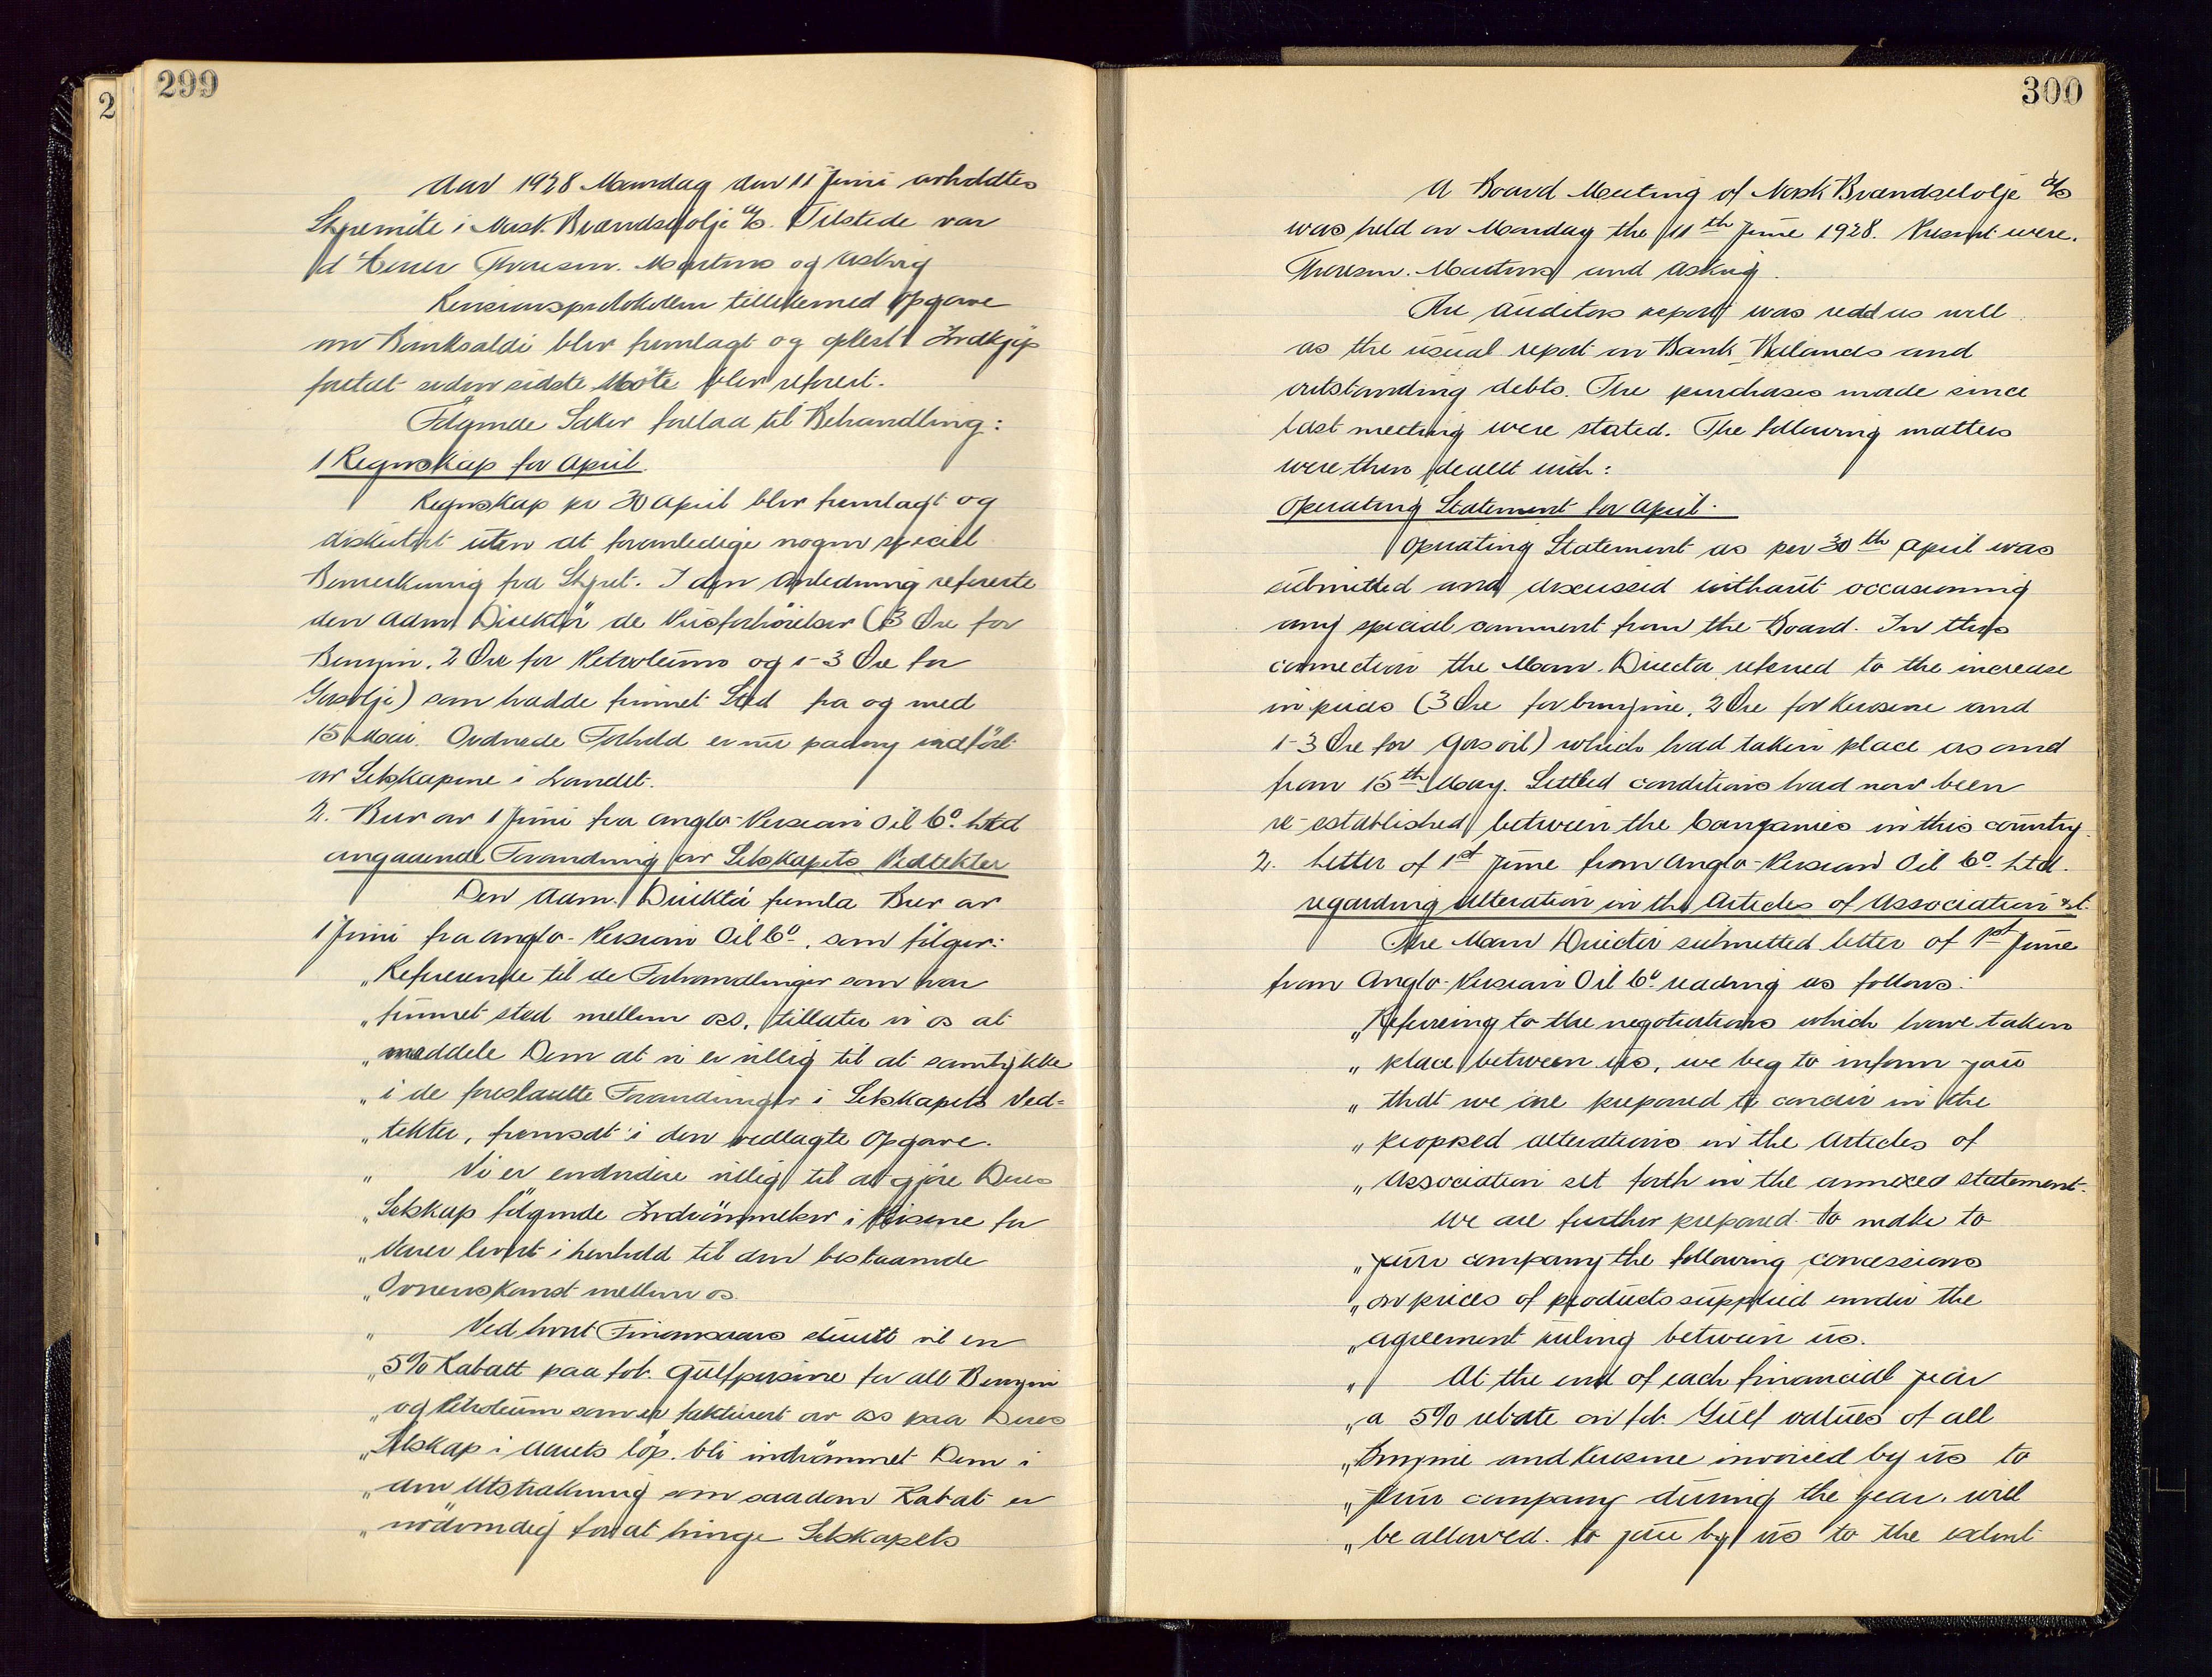 2
299
Aar 1928 Mandag den 11 Juni avholdtes
Styremöte i Norsk Brændselolje A/S. Tilstede var
d'Herrer Thoresen. Martens og Askvig
Revisionsprotokollen tillikemed Opgave
over Banksaldi blev fremlagt og oplest Indkjöp
foretat siden sidste Möte blev referert.
Fölgende Saker forelaa til Behandling:
1 Regnskap for April.
Regnskap pr 30 April blev fremlagt og
diskutert uten at foranledige nogen speciel
Bemerkning fra Styret. I den Anledning refererte
den Adm Direktör de Prisforhöielser (3 Öre for
Benzin, 2 Öre for Petroleum og 1-3 Öre for
Gasolje) som hadde funnet Sted fra og med
15 Mai. Ordnede Forhold er nu paany indfört
av Selskapene i Landet.
2. Brev av 1 Juni fra Anglo-Persian Oil Co. Ltd
angaaende Forandring av Selskapets Vedtekter
Den Adm. Direktör fremla Brev av
1 Juni fra Anglo-Persian Oil Co., som fölger:
"Refererende til de Forhandlinger som har
"funnet sted mellem oss, tillater vi os at
"meddele Dem at vi er villig til at samtykke
"i de foreslaatte Forandringer i Selskapets Ved=
"tekter, fremsat i den vedlagte Opgave.
" Vi er endvidere villig til at gjöre Deres
"Selskap fölgende Indrömmelser i Prisene for
"Varer levert i henhold til den bestaaende
"Overenskomst mellem os.
" Ved hvert Finansaars slutt vil en
"5% Rabatt paa fob. Gulfprisene for all Benzin
"og Petroleum som er fakturert av oss paa Deres
"Selskap i Aarets löp. bli indrömmet Dem i
"den Utstrækning som saadan Rabat er
"nödvendig for at bringe Selskapets
300
A Board Meeting of Norsk Brændselolje A/S
was held on Monday the 11th June 1928. Present were.
Thoresen. Martens and Askvig.
The Auditors report was redd as well
as the usual report on Bank Balances and
outstanding debts. The purchases made since
last meeting were stated. The following matters
were then dealt with:
Operating Statement for April.
Operating Statement as per 30th April was
submitted and discussed without occasioning
any special comment from the Board. In this
connection the Man. Director referred to the increase
in prices (3 Öre for benzine, 2 Öre for Kerosene and
1-3 Öre for Gasoil) which had taken place as and
from 15th May. Settled conditions had now been
re-established between the Companies in this country.
2. Letter of 1st June from Anglo-Persian Oil Co. Ltd.
regarding Alteration in the Articles of Association
The Man Director submitted letter of 1st June
from Anglo-Persian Oil Co. reading as follows:
"Referring to the negotiations which have taken
"place between us, we beg to inform you
"that we are prepared to concur in the
"proposed alterations in the Articles of
"Association set forth in the annexed statement.
We are further prepared to make to
"your company the following concessions
"on prices of products supplied under the
"agreement ruling between us.
" At the end of each financial year
"a 5% rebate on fob. Gulf values of all
"Benzine and Kerosene invoiced by us to
"your company during the year, will
"be allowed. to you by us to the extent